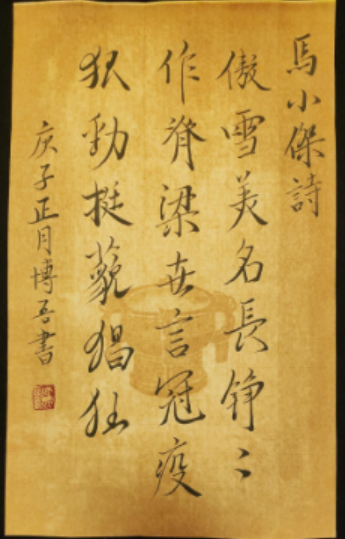 馬小傑詩
傲雪美名長铮〻
作脊梁言冠疫
勁挺藐猖狂
庚子正月博吾書